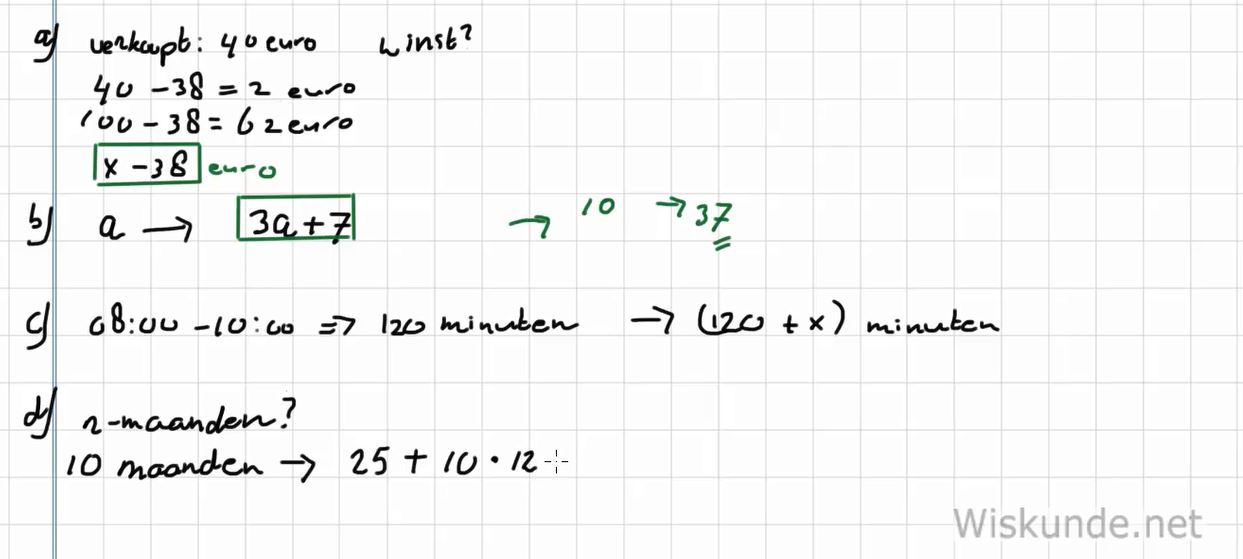 a) verkoopt: 40 euro winst?
40 - 38 = 2 euro
100 - 38 = 62 euro
x - 38 euro
b) a → 3a + 7 → 10 → 37
c) 08:00 - 10:00 => 120 minuten → (120 + x) minuten
d) n-maanden?
10 maanden → 25 + 10 · 12
Wiskunde.net